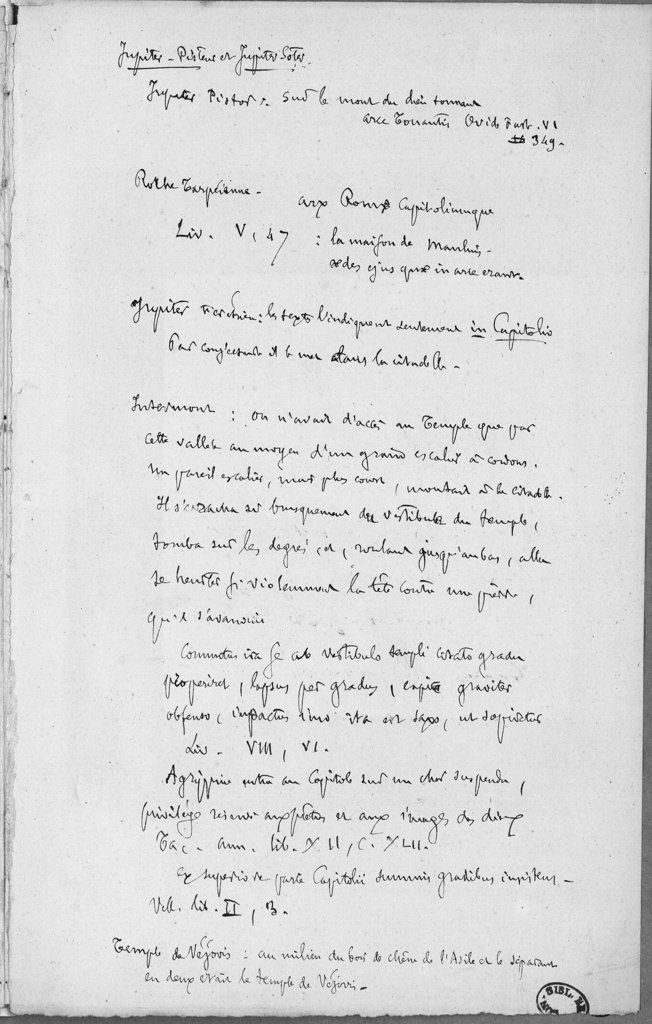 Jupiter-Pistor et Jupiter Soter.
Jupiter Pistor : sur le mont du dieu tonnant
arce Tonantis Ovid. Fast. VI
349.
Roche Tarpéienne -
arx Romæ Capitoliumque
Liv. V, 47 : la maison de Manlius -
ædes ejus quæ in arce erant.
Jupiter : les textes l'indiquent seulement in Capitolio
Par conjecture on le met dans la citadelle -
Intermont : on n'avait d'accès au Temple que par
cette vallée au moyen d'un grand escalier à cordons.
Un pareil escalier, mais plus court, montait à la citadelle.
Il s'arracha si brusquement du vestibule du temple,
tomba sur les degrés, et, roulant jusqu'au bas, alla
se heurter si violemment la tête contre une pierre,
qu'il s'évanouit
Commotus ira se ab vestibulo templi citato gradu
properiret, lapsus per gradus, capite graviter
offenso, impactus imo ita est saxo, ut sopiretur
Liv. VIII, VI.
Agrippine entra au Capitole sur un char suspendu,
privilège réservé aux prêtres et aux images des dieux
Tac. ann. lib. XII, C. XLII.
ex superiore parte Capitolii summis gradibus insistens -
Vell. lib. II, 3.
Temple de Véjovis : au milieu du bois de chêne de l'Asile et le séparant
en deux était le temple de Véjovis -